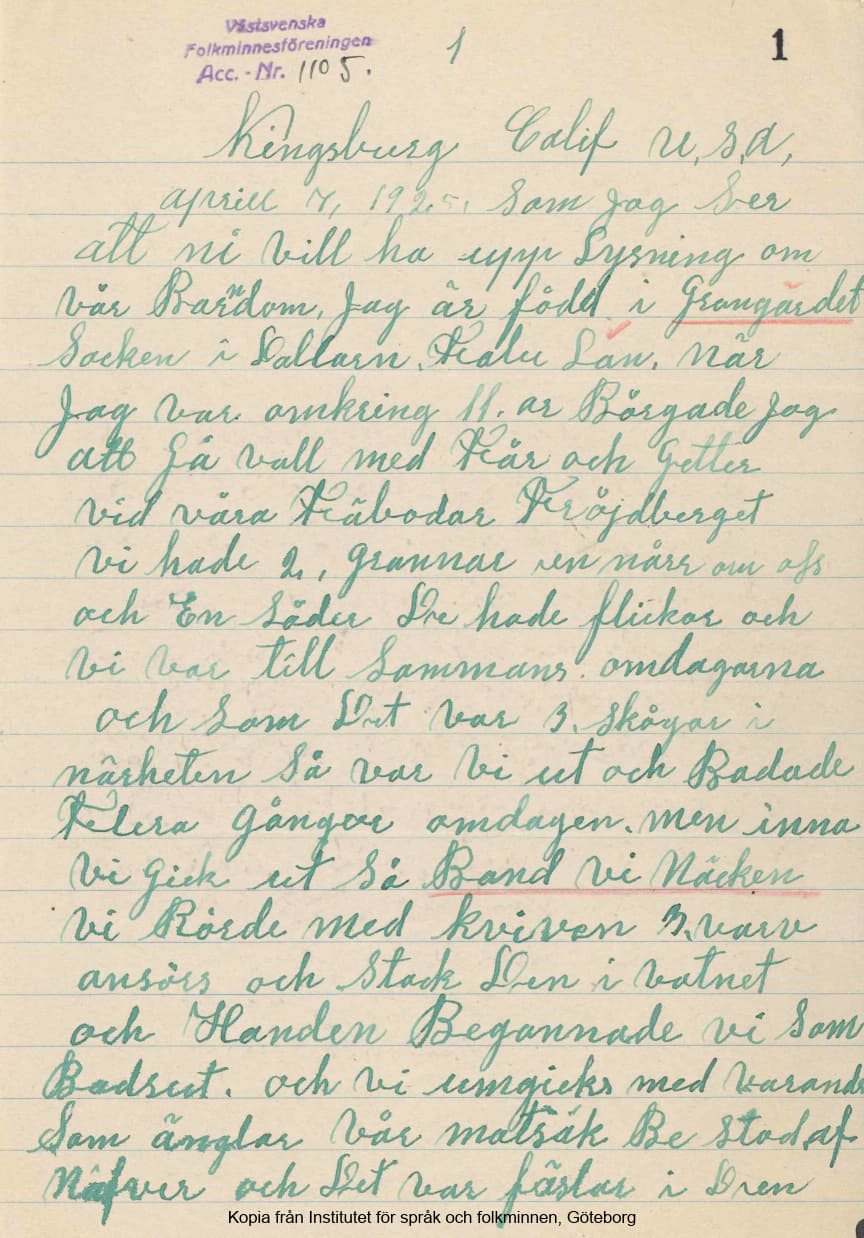 Västsvenska
Folkminnesföreningen
Acc. - Nr. 1105.
1
1
Kingsburg Calif U,S,A,
aprill 7, 1925, Som jag Ser
att ni vill ha upp Lysning om
vår Barndom, Jag är född i Grangärdet
Socken i Dallarn. Kalu Län. när
Jag var omkring 11. ar Börgade jag
att Gå vall med Kör och Getter
vid våra Käbodar Fröjdberget
vi hade 2, Grannar en nårr om oss
och En Söder De hade flickor och
vi var till Sammans omdagarna
och Som Det var 3. Skögar i
närheten Så var Vi ut och Badade
Flera Gångor omdagen. men inna
Vi Gick ut Så Band Vi Näcken
Vi Rörde med kniven 3. varv
ansörs och Stack Den i vatnet
och Handen Begannade vi Som
Badsut. och vi umgicks med Varandr
Som änglar Vår matsäk Be Stod af
Näfver och Det var fästar i Den
Kopia från Institutet för språk och folkminnen, Göteborg